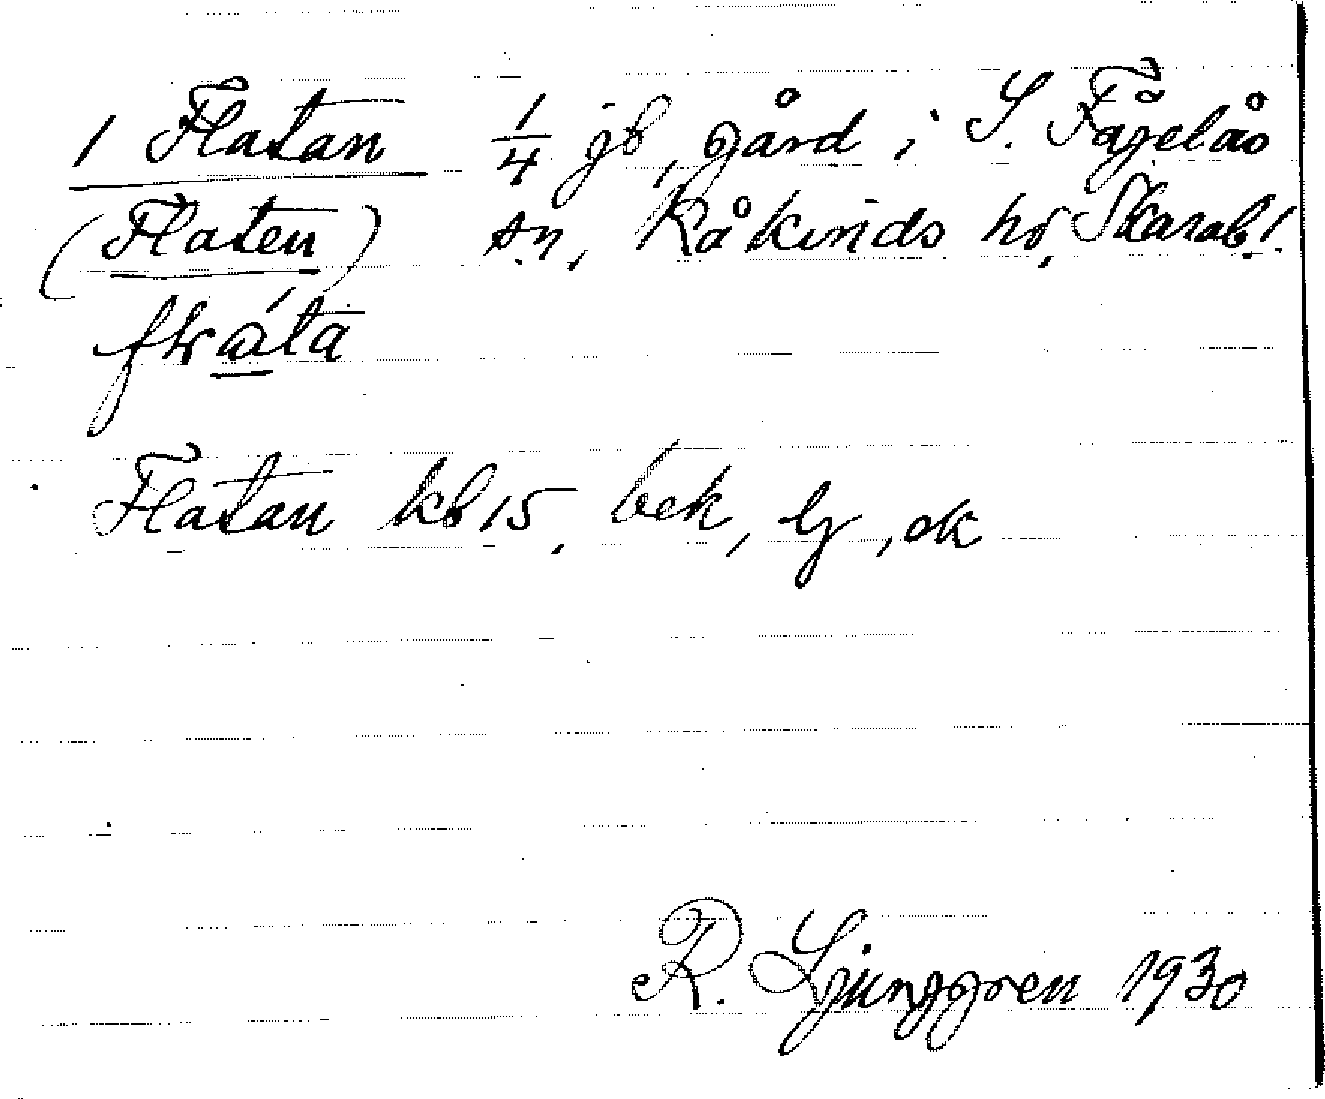 1 Flatan 1/4 jb, gård i S. Fågelås
(Flaten) sn, Kåkinds hd, Skarab.l.
Flatan kb 15, bek, lj, ek
R. Ljunggren 1930